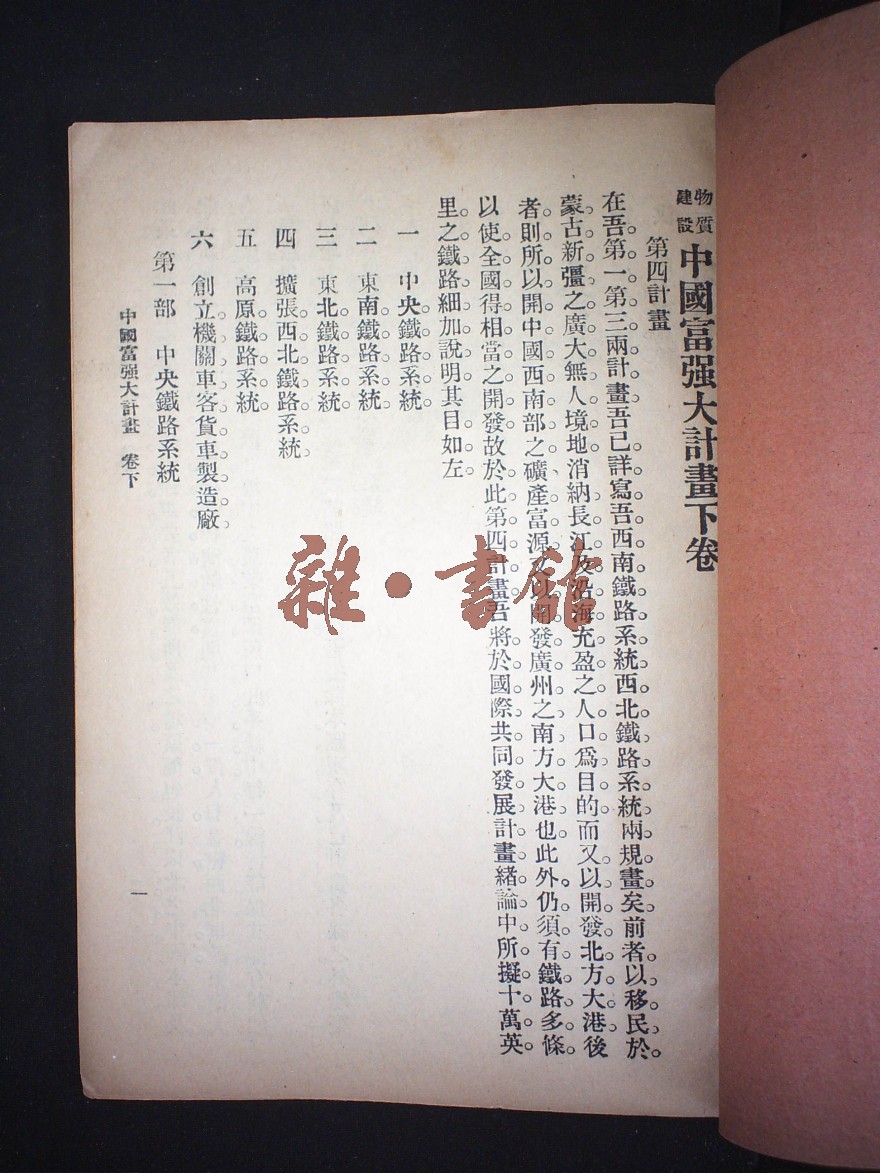 物質建設 中國富强大計畫下卷
第四計畫
在吾第一第三兩計畫吾已詳寫吾西南鐵路系統西北鐵路系統兩規畫矣前者以移民於
蒙古新彊之廣大無人境地消納長江及沿海充盈之人口爲目的而又以開發北方大港後
者則所以開中國西南部之礦產富源又以開發廣州之南方大港也此外仍須有鐵路多條
以使全國得相當之開發故於此第四計畫吾將於國際共同發展計畫緒論中所擬十萬英
里之鐵路細加說明其目如左
一 中央鐵路系統
二 東南鐵路系統
三 東北鐵路系統
四 擴張西北鐵路系統
五 高原鐵路系統
六 創立機關車客貨車製造廠
第一部 中央鐵路系統
中國富强大計畫 卷下
一
雜·書館